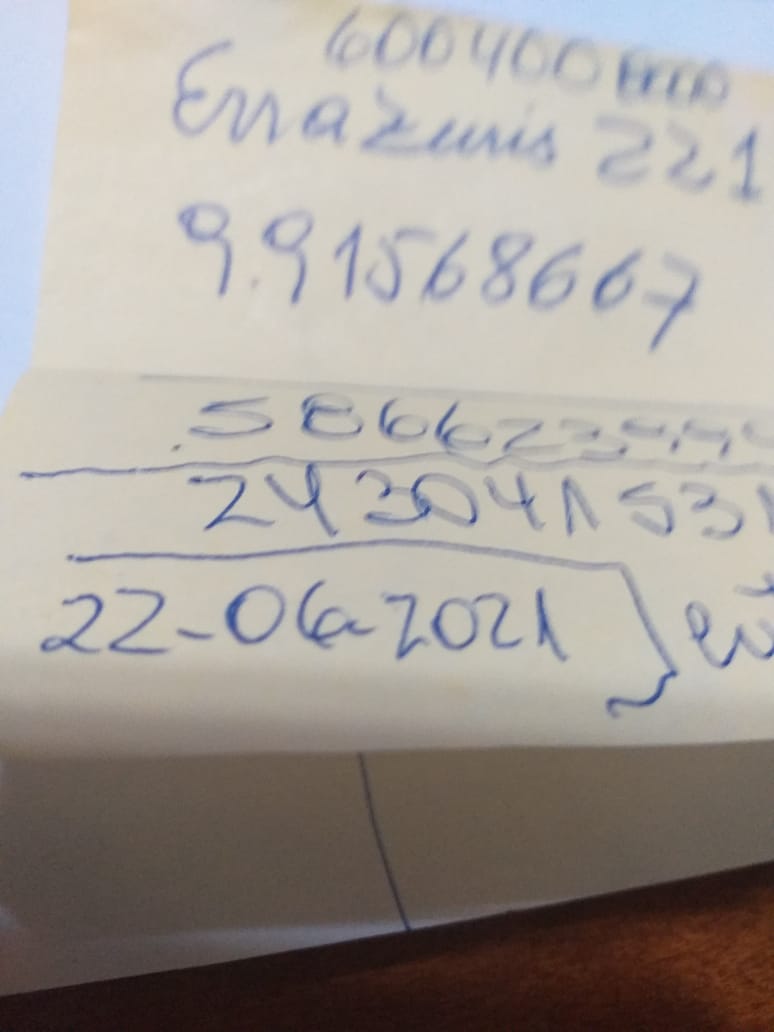 600400
Errazuris 221
9.91568667
586623444
2430041531
22-06-2021